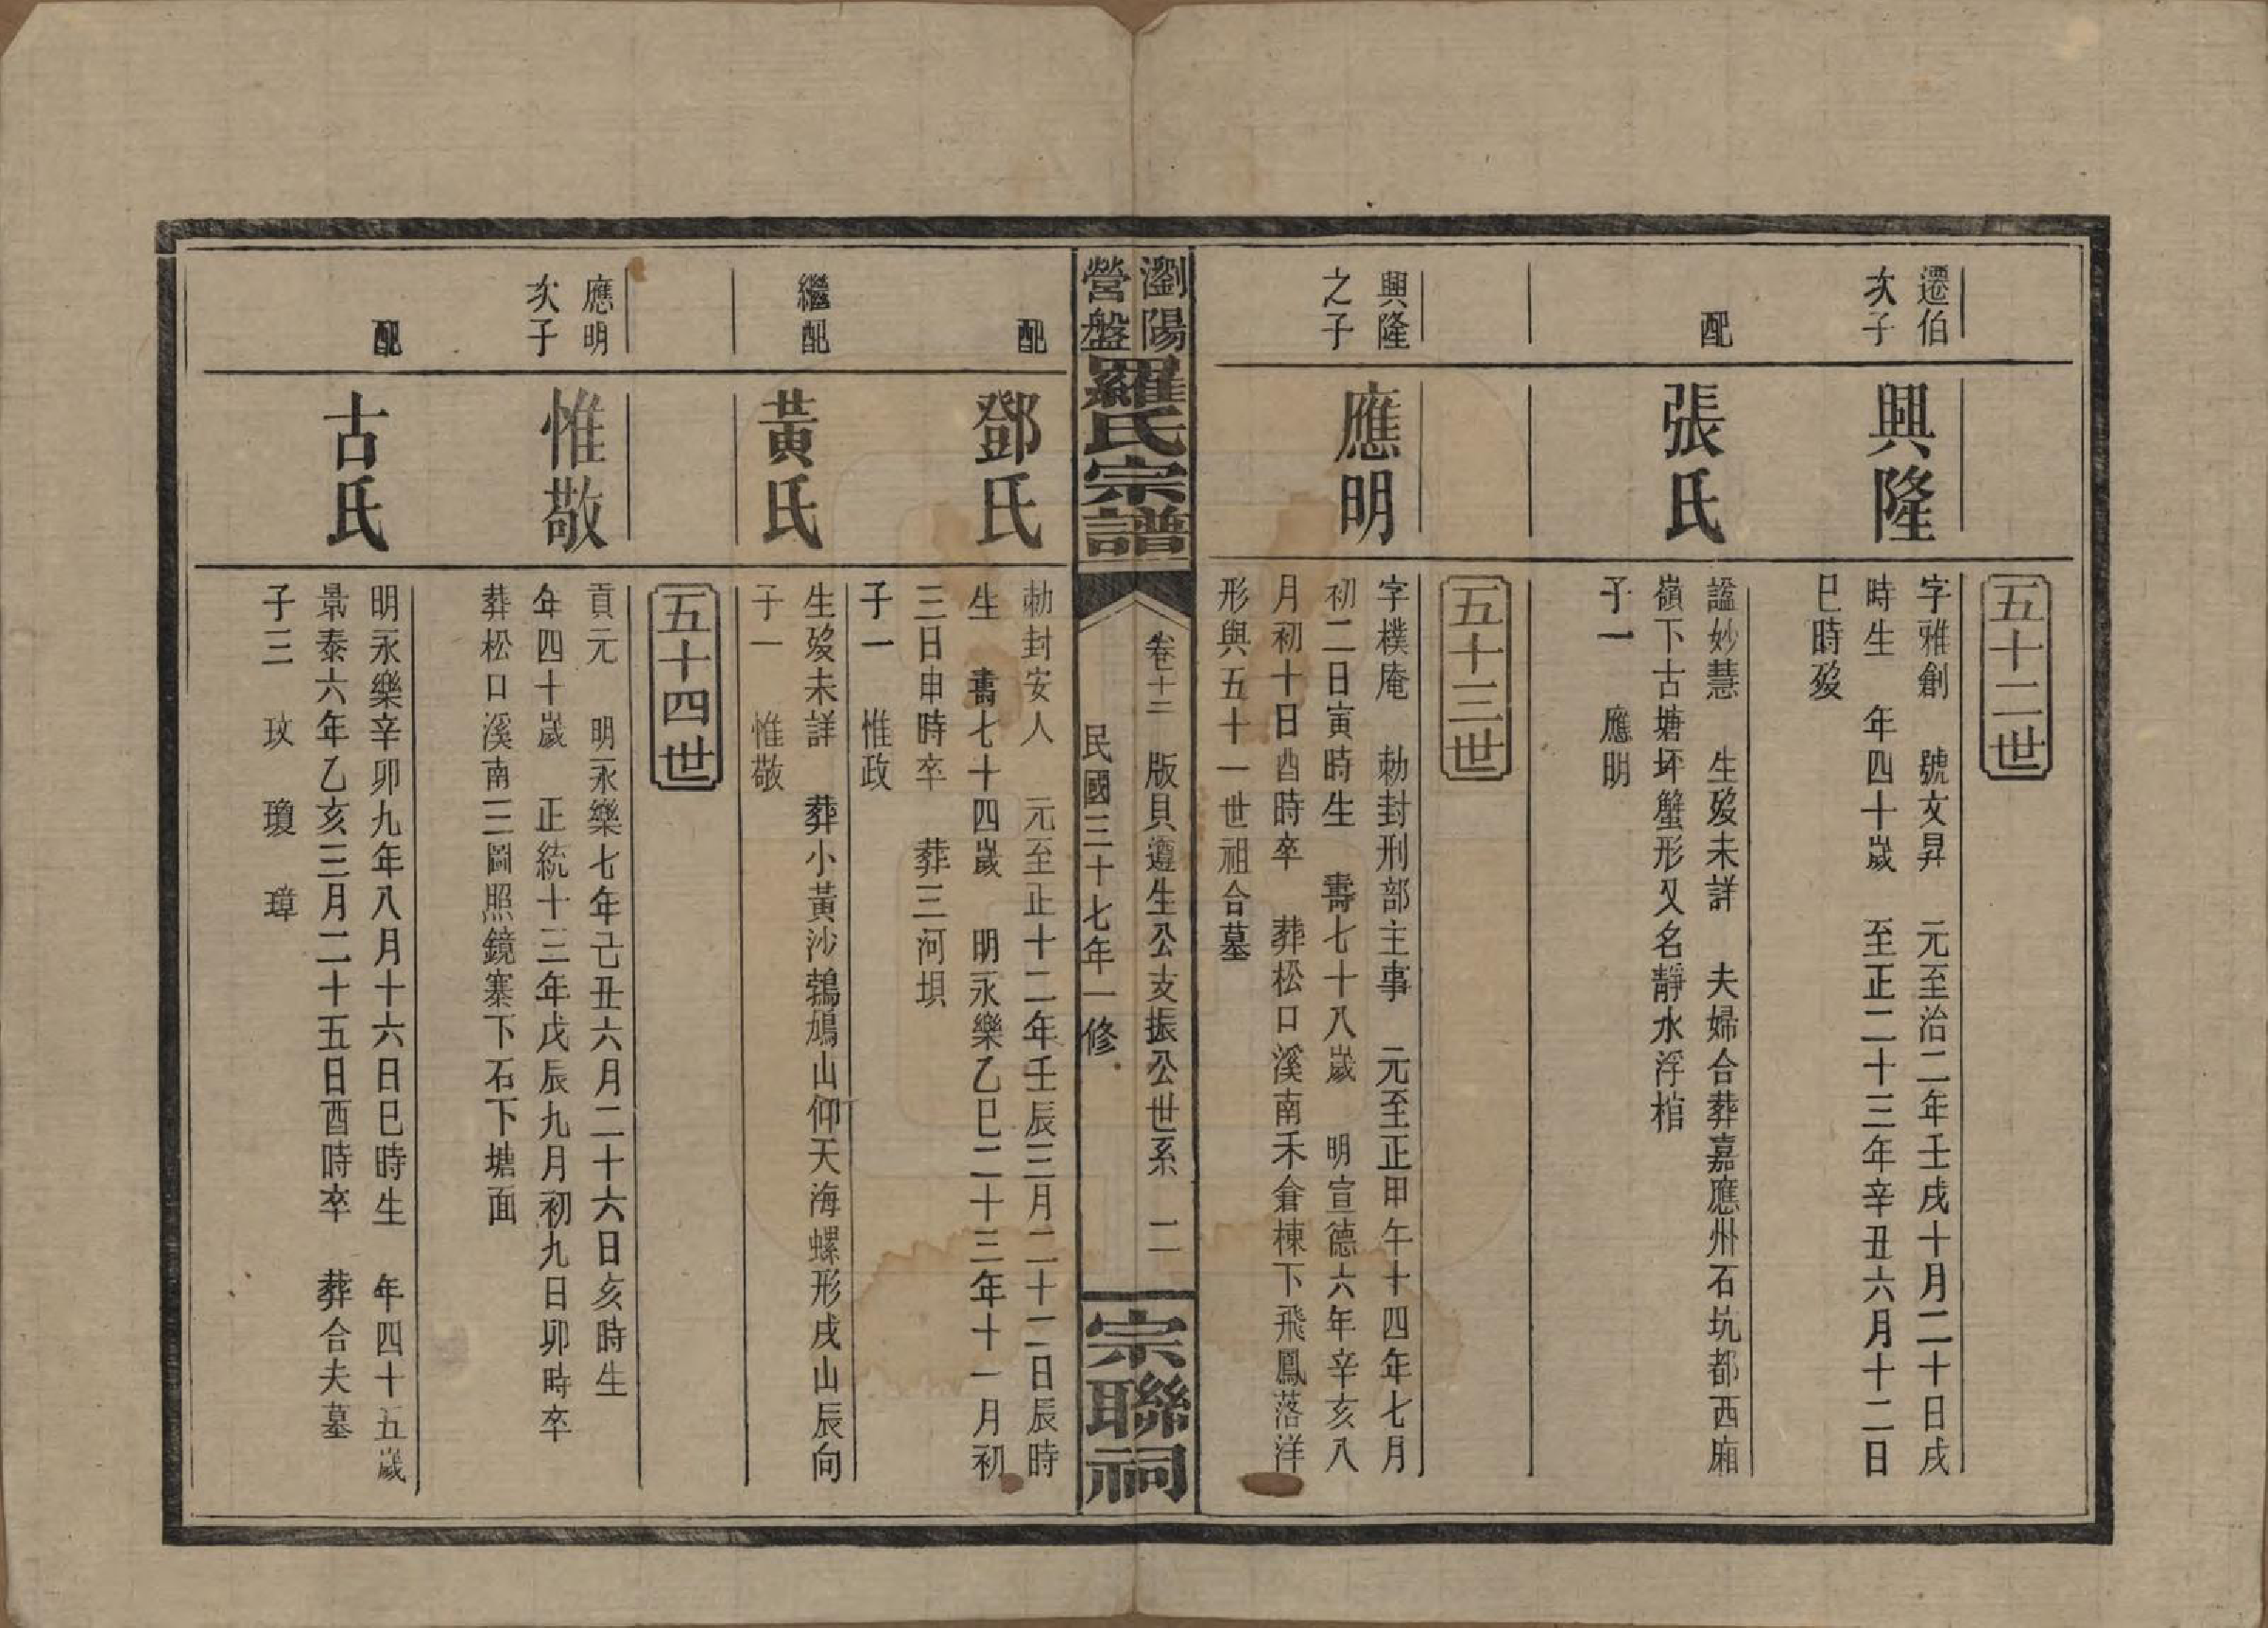 五十二世
遷伯
次子
興隆
字雅創　號文昇　元至治二年壬戌十月二十日戌
時生　年四十歲　至正二十三年辛丑六月十二日
巳時歿
配
張氏
謚妙慧　生歿未詳　夫婦合葬嘉應州石坑都西廂
嶺下古塘坏蟹形又名靜水浮棺
子一　應明
五十三世
興隆
之子
應明
字樸庵　勅封刑部主事　元至正甲午十四年七月
初二日寅時生　壽七十八歲　明宣德六年辛亥八
月初十日酉時卒　葬松口溪南禾倉棟下飛鳳落洋
形與五十一世祖合墓
瀏陽
營盤
羅氏宗譜
卷十二　版貝遵生公支振公世系　二
民國三十七年一修
宗聯祠
配
鄧氏
勅封安人　元至正十二年壬辰三月二十二日辰時
生　壽七十四歲　明永樂乙巳二十三年十一月初
三日申時卒　葬三河垻
子一　惟政
繼配
黃氏
生歿未詳　葬小黃沙鵓鳩山仰天海螺形戌山辰向
子一　惟敬
五十四世
應明
次子
惟敬
貢元　明永樂七年己丑六月二十六日亥時生
年四十歲　正統十三年戊辰九月初九日卯時卒
葬松口溪南三圖照鏡寨下石下塘面
配
古氏
明永樂辛卯九年八月十六日巳時生　年四十五歲
景泰六年乙亥三月二十五日酉時卒　葬合夫墓
子三　玟　瓊　璋